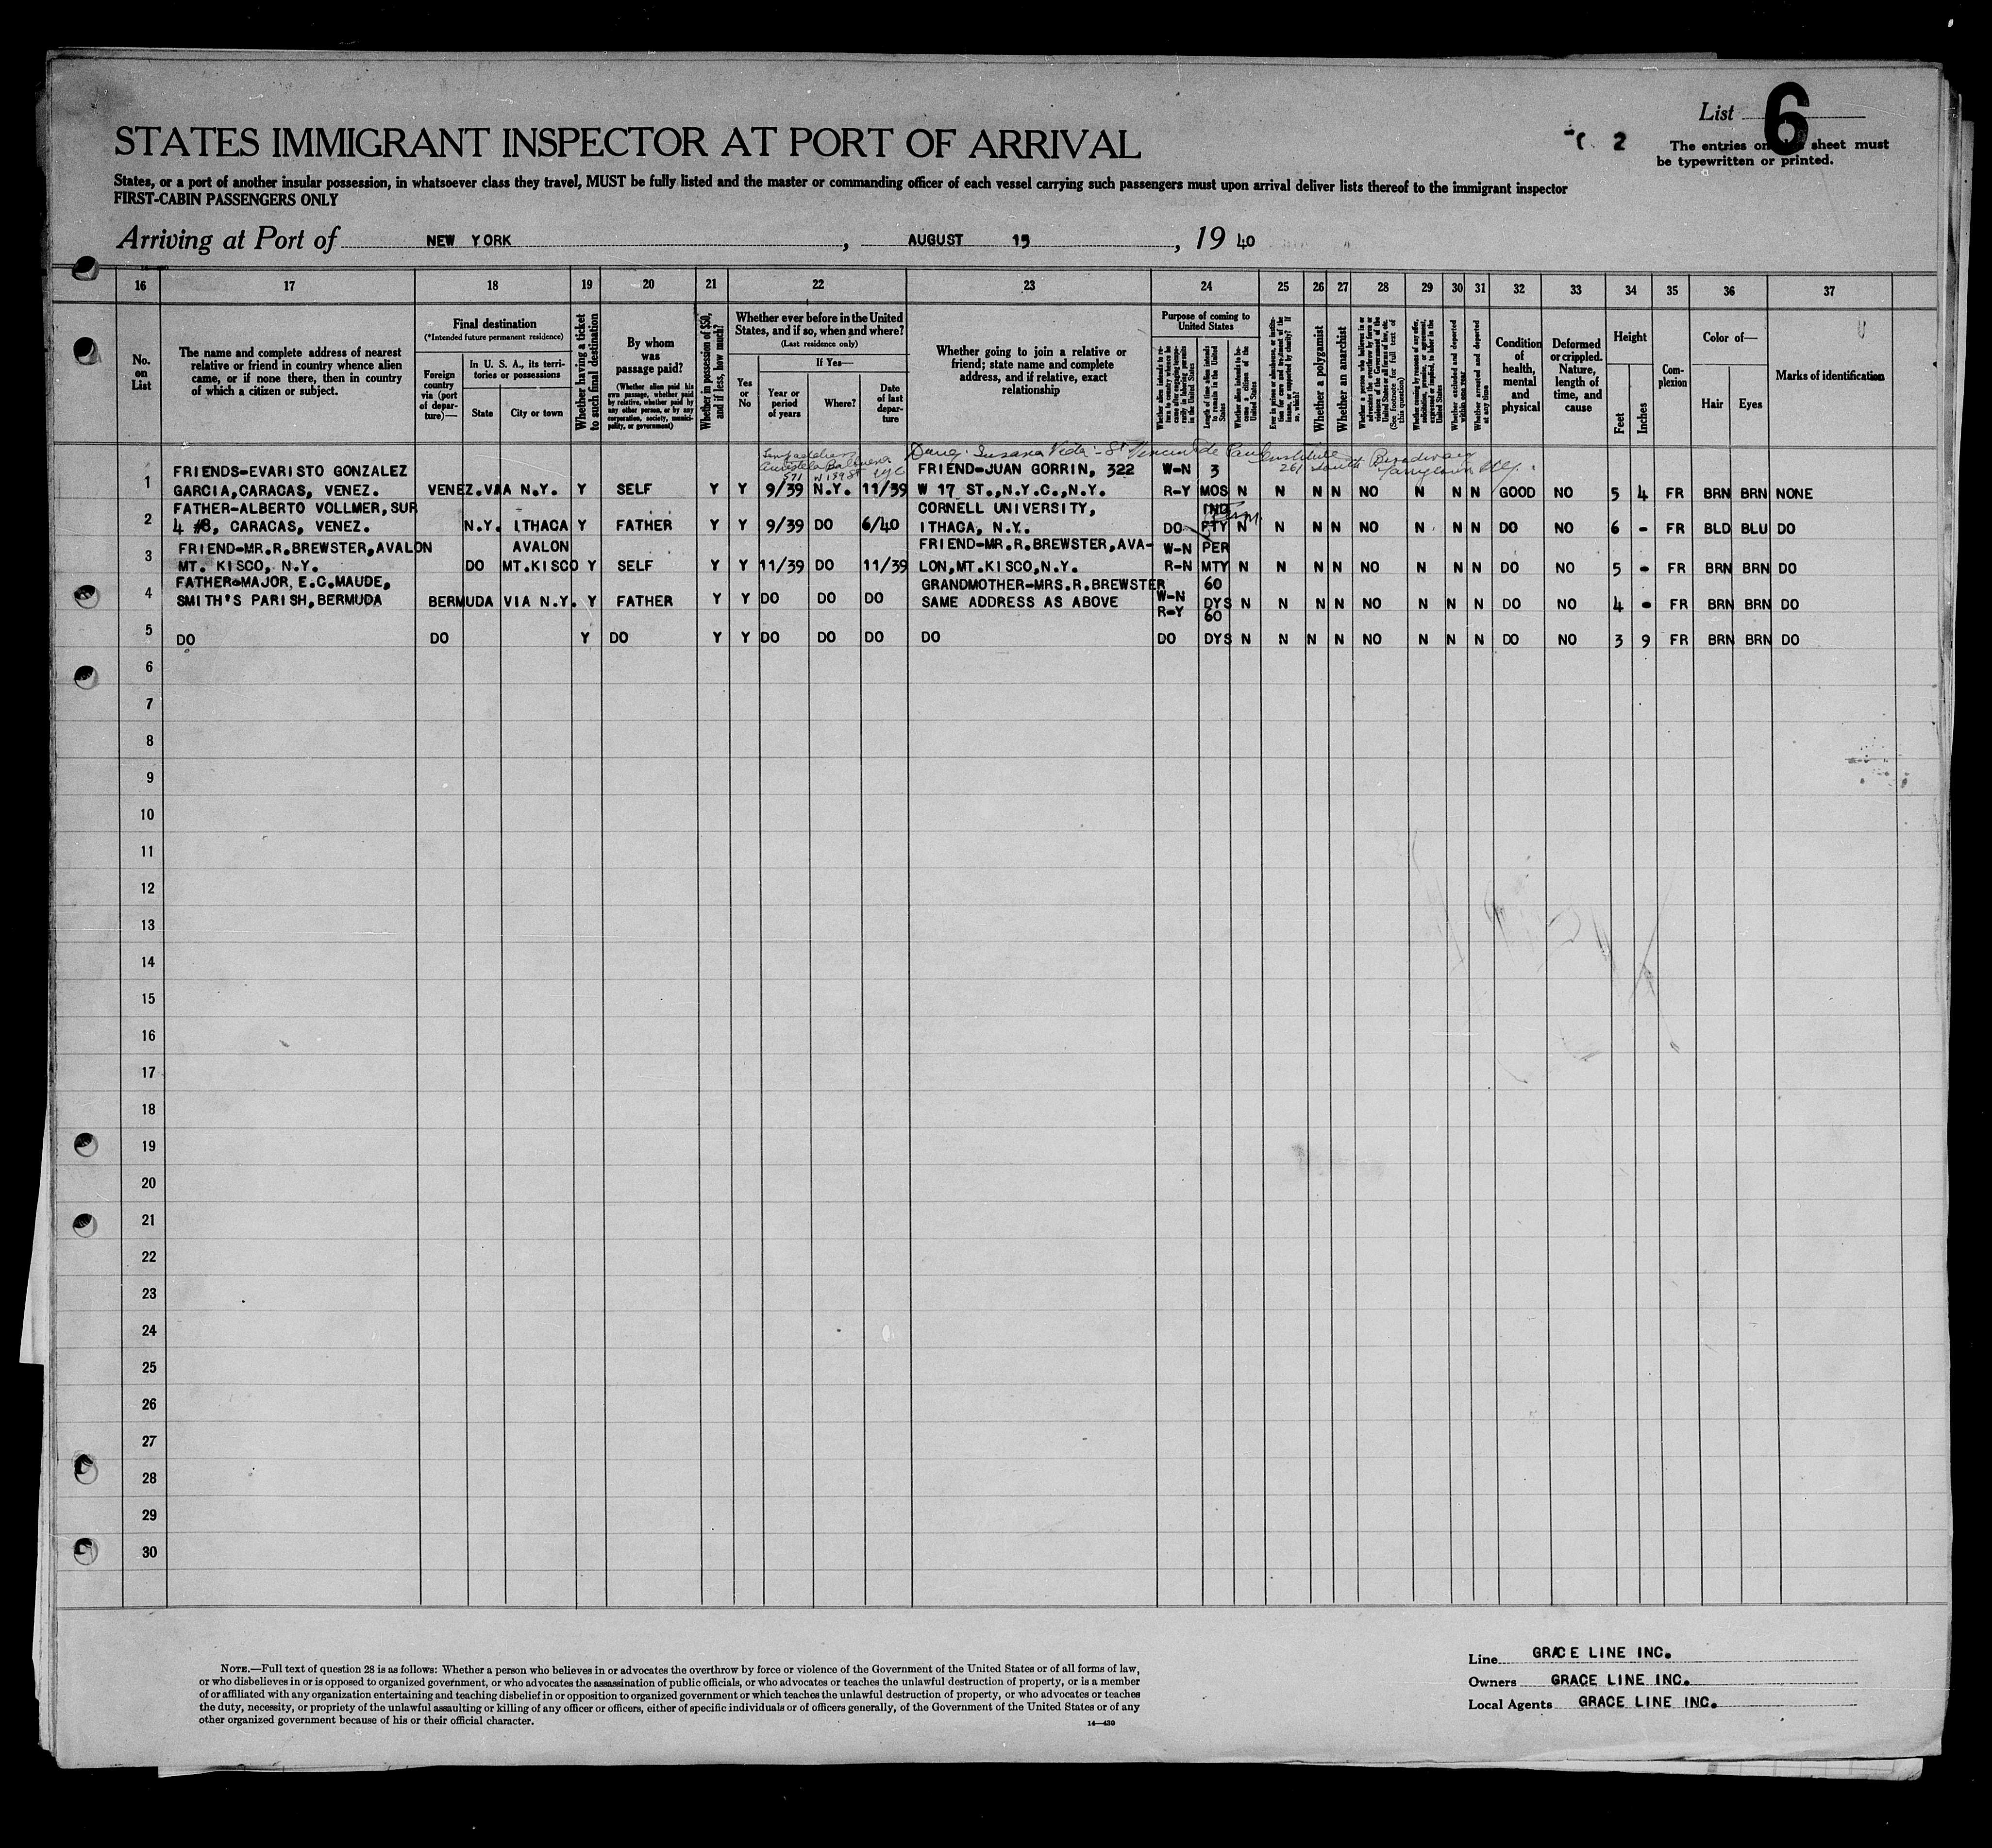 List 6
STATES IMMIGRANT INSPECTOR AT PORT OF ARRIVAL
2
The entries on sheet must
be typewritten or printed.
States, or a port of another insular possession, in whatsoever class they travel, MUST be fully listed and the master or commanding officer of each vessel carrying such passengers must upon arrival deliver lists thereof to the immigrant inspector
FIRST-CABIN PASSENGERS ONLY
Arriving at Port of NEW YORK, AUGUST 15, 19 40
16 17 18 19 20 21 22 23 24 25 26 27 28 29 30 31 32 33 34 35 36 37
No. on List
The name and complete address of nearest
relative or friend in country whence alien
came, or if none there, then in country
of which a citizen or subject.
Final destination
(*Intended future permanent residence)
Foreign country via (port of departure)—
In U. S. A., its territories or possessions
State
City or town
Whether having a ticket to such final destination
By whom was passage paid?
(Whether alien paid his own passage, whether paid by relative, whether paid by any other person, or by any corporation, society, municipality, or government)
Whether in possession of $50, and if less, how much?
Whether ever before in the United States, and if so, when and where?
(Last residence only)
Yes or No
If Yes—
Year or period of years
Where?
Date of last departure
Whether going to join a relative or
friend; state name and complete
address, and if relative, exact
relationship
Purpose of coming to United States
Length of time alien intends to remain in the United States
Whether alien intends to become a citizen of the United States
Whether a polygamist
Whether an anarchist
Whether excluded and deported within one year
Whether arrested and deported at any time
Condition of health, mental and physical
Deformed or crippled. Nature, length of time, and cause
Height
Feet
Inches
Complexion
Color of—
Hair
Eyes
Marks of identification
Susana Vida - St Vincent de Paul Institute
261 South Broadway
Tarrytown NY.
571 W 139 St NYC
1 FRIENDS-EVARISTO GONZALEZ FRIEND-JUAN GORRIN, 322 W-N 3
GARCIA, CARACAS, VENEZ. VENEZ. VIA N.Y. Y SELF Y Y 9/39 N.Y. 11/39 W 17 ST.,N.Y.C.,N.Y. R-Y MOS N N N N NO N N N GOOD NO 5 4 FR BRN BRN NONE
2 FATHER-ALBERTO VOLLMER, SUR CORNELL UNIVERSITY, IND
4 #8, CARACAS, VENEZ. N.Y. ITHACA Y FATHER Y Y 9/39 DO 6/40 ITHACA, N.Y. DO FTY N N N N NO N N N DO NO 6 - FR BLD BLU DO
3 FRIEND-MR.R.BREWSTER, AVALON AVALON FRIEND-MR.R.BREWSTER, AVA- W-N PER
MT. KISCO, N.Y. DO MT.KISCO Y SELF Y Y 11/39 DO 11/39 LON, MT.KISCO, N.Y. R-N MTY N N N N NO N N N DO NO 5 - FR BRN BRN DO
4 FATHER-MAJOR, E.C.MAUDE, GRANDMOTHER-MRS.R.BREWSTER W-N 60
SMITH'S PARISH, BERMUDA BERMUDA VIA N.Y. Y FATHER Y Y DO DO DO SAME ADDRESS AS ABOVE R-Y DYS N N N N NO N N N DO NO 4 - FR BRN BRN DO
60
5 DO DO Y DO Y Y DO DO DO DO DO DYS N N N N NO N N N DO NO 3 9 FR BRN BRN DO
6
7
8
9
10
11
12
13
14
15
16
17
18
19
20
21
22
23
24
25
26
27
28
29
30
NOTE.—Full text of question 28 is as follows: Whether a person who believes in or advocates the overthrow by force or violence of the Government of the United States or of all forms of law,
or who disbelieves in or is opposed to organized government, or who advocates the assassination of public officials, or who advocates or teaches the unlawful destruction of property, or is a member
of or affiliated with any organization entertaining and teaching disbelief in or opposition to organized government or which teaches the unlawful destruction of property, or who advocates or teaches
the duty, necessity, or propriety of the unlawful assaulting or killing of any officer or officers, either of specific individuals or of officers generally, of the Government of the United States or of any
other organized government because of his or their official character.
14—430
Line GRACE LINE INC.
Owners GRACE LINE INC.
Local Agents GRACE LINE INC.